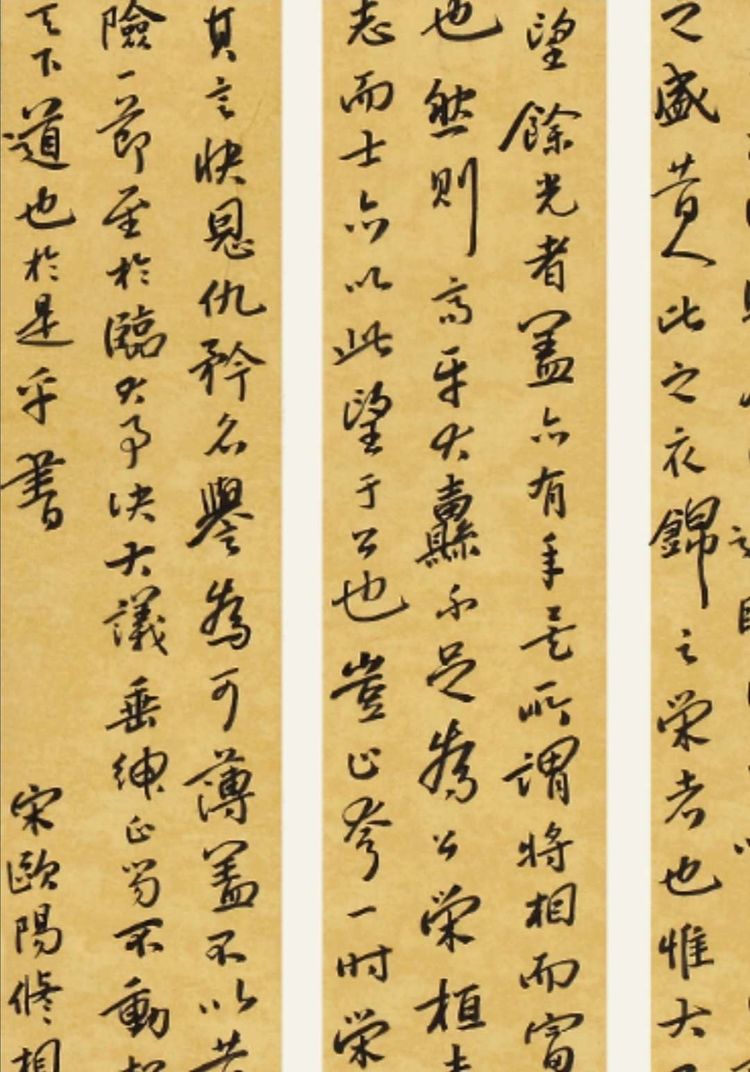 之盛昔人比之衣錦之榮者也惟大
望餘光者蓋亦有年矣所謂將相而富
也然則高牙大纛不足為公榮桓
志而士亦以此望于公也豈止夸一时榮
其言快恩仇矜名譽為可薄蓋不以昔
險一節至於臨大事決大議垂紳正笏不動
天下道也於是乎書 宋歐陽修相